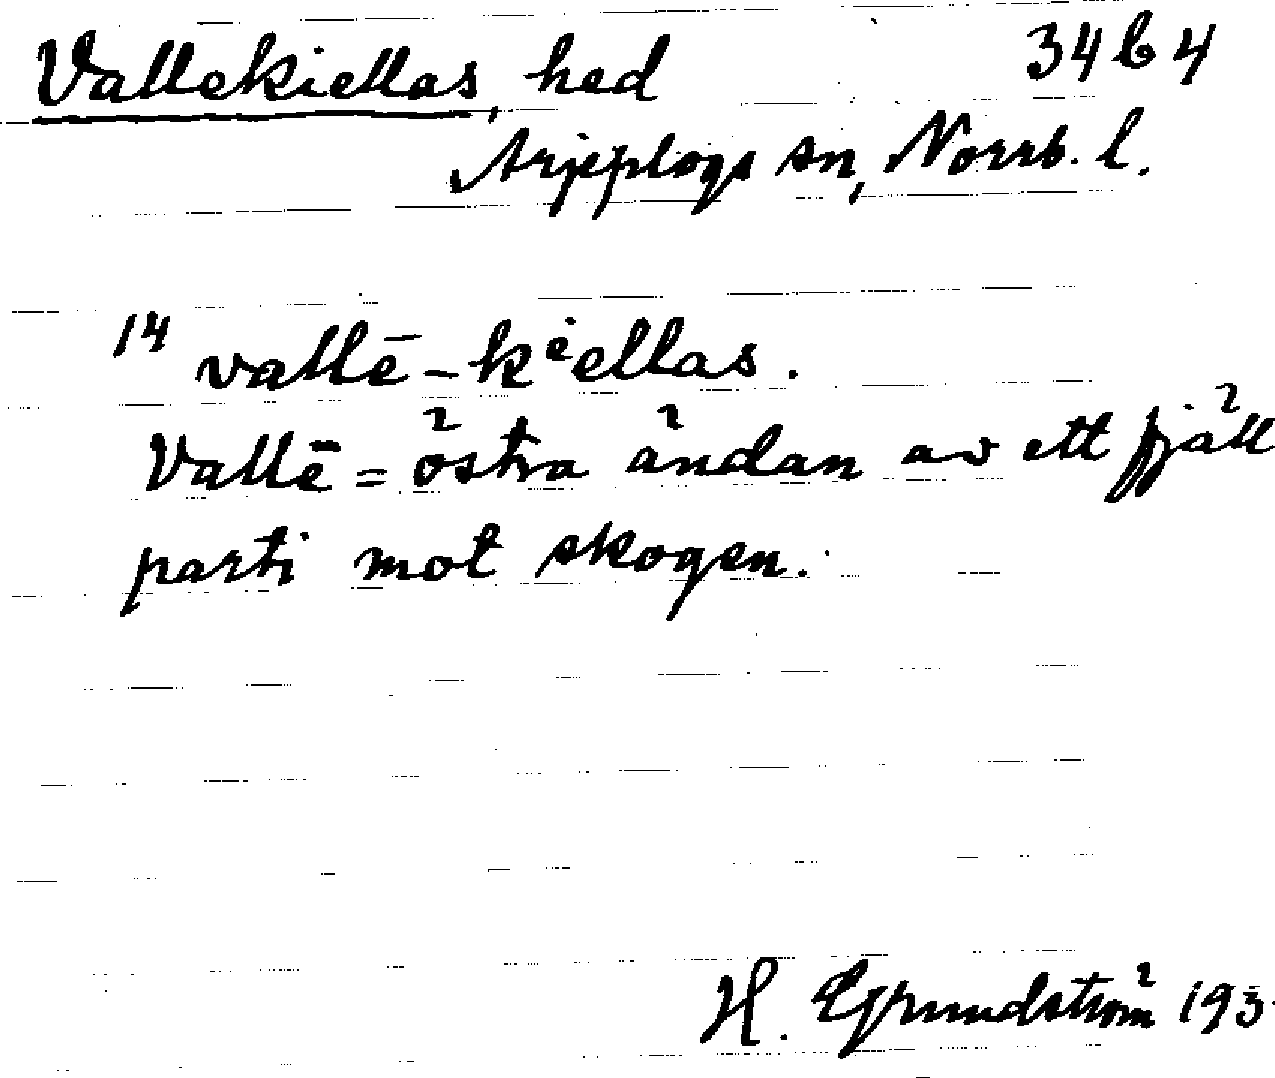 Vallekiellas, hed 34 b 4
Arjeplogs sn, Norrb. l.
14 vallē-kⁱellas.
Vallē = östra ändan av ett fjäll
parti mot skogen.
H. Grundström 193